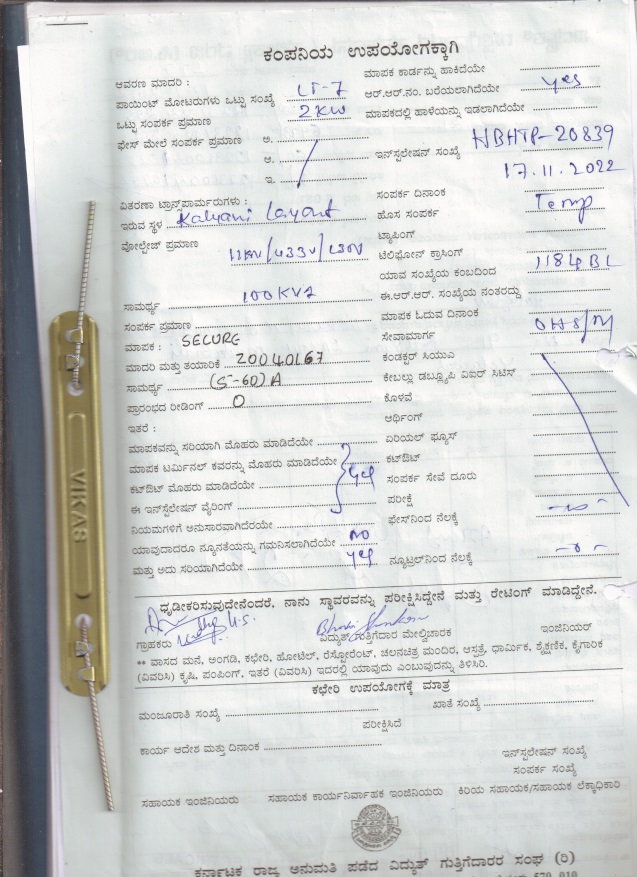 ಕಂಪನಿಯ ಉಪಯೋಗಕ್ಕಾಗಿ
ಆವರಣ ಮಾದರಿ :
ಮಾಪಕ ಕಾರ್ಡನ್ನು ಹಾಕಿದೆಯೇ
ಪಾಯಿಂಟ್ ಮೋಟರುಗಳು ಒಟ್ಟು ಸಂಖ್ಯೆ LT-7
ಆರ್.ಆರ್.ನಂ. ಬರೆಯಲಾಗಿದೆಯೇ yes
ಒಟ್ಟು ಸಂಪರ್ಕ ಪ್ರಮಾಣ 2KW
ಮಾಪಕದಲ್ಲಿ ಹಾಳೆಯನ್ನು ಇಡಲಾಗಿದೆಯೇ
ಫೇಸ್ ಮೇಲೆ ಸಂಪರ್ಕ ಪ್ರಮಾಣ ಅ.
ಆ.
ಇ.
ಇನ್‌ಸ್ಟಲೇಷನ್ ಸಂಖ್ಯೆ NBHTP-20839
17.11.2022
ವಿತರಣಾ ಟ್ರಾನ್ಸ್‌ಫಾರ್ಮರುಗಳು :
ಸಂಪರ್ಕ ದಿನಾಂಕ
ಇರುವ ಸ್ಥಳ Kalyani Layout
ಹೊಸ ಸಂಪರ್ಕ Temp
ವೋಲ್ಟೇಜ್ ಪ್ರಮಾಣ 11KV/433V/230V
ಟ್ಯಾಪಿಂಗ್
ಟೆಲಿಫೋನ್ ಕ್ರಾಸಿಂಗ್
ಯಾವ ಸಂಖ್ಯೆಯ ಕಂಬದಿಂದ 1184BL
ಸಾಮರ್ಥ್ಯ 100KVA
ಈ.ಆರ್.ಆರ್. ಸಂಖ್ಯೆಯ ನಂತರದ್ದು
ಸಂಪರ್ಕ ಪ್ರಮಾಣ
ಮಾಪಕ ಓದುವ ದಿನಾಂಕ
ಮಾಪಕ : SECURE
ಸೇವಾಮಾರ್ಗ
ಮಾದರಿ ಮತ್ತು ತಯಾರಿಕೆ 20040167
ಕಂಡಕ್ಟರ್ ಸಿಯುಎ
ಸಾಮರ್ಥ್ಯ (5-60)A
ಕೇಬಲ್ಲು ಡಬ್ಲ್ಯೂಪಿ ವಿಐರ್ ಸಿಟಿಸ್
ಪ್ರಾರಂಭದ ರೀಡಿಂಗ್ 0
ಕೊಳವೆ
ಇತರೆ :
ಆರ್ಥಿಂಗ್
ಮಾಪಕವನ್ನು ಸರಿಯಾಗಿ ಮೊಹರು ಮಾಡಿದೆಯೇ
ಏರಿಯಲ್ ಫ್ಯೂಸ್
ಮಾಪಕ ಟರ್ಮಿನಲ್ ಕವರನ್ನು ಮೊಹರು ಮಾಡಿದೆಯೇ yes
ಕಟ್‌ಔಟ್
ಕಟ್‌ಔಟ್ ಮೊಹರು ಮಾಡಿದೆಯೇ
ಸಂಪರ್ಕ ಸೇವೆ ದೂರು
ಈ ಇನ್‌ಸ್ಟೆಲೇಷನ್ ವೈರಿಂಗ್
ಪರೀಕ್ಷೆ
ನಿಯಮಗಳಿಗೆ ಅನುಸಾರವಾಗಿದೆರಯೇ
ಫೇಸ್‌ನಿಂದ ನೆಲಕ್ಕೆ
ಯಾವುದಾದರೂ ನ್ಯೂನತೆಯನ್ನು ಗಮನಿಸಲಾಗಿದೆಯೇ NO
ಮತ್ತು ಅದು ಸರಿಯಾಗಿದೆಯೇ yes
ನ್ಯೂಟ್ರಲ್‌ನಿಂದ ನೆಲಕ್ಕೆ
ಧೃಡೀಕರಿಸುವುದೇನೆಂದರೆ. ನಾನು ಸ್ಥಾವರವನ್ನು ಪರೀಕ್ಷಿಸಿದ್ದೇನೆ ಮತ್ತು ರೇಟಿಂಗ್ ಮಾಡಿದ್ದೇನೆ.
ಗ್ರಾಹಕರು
ವಿದ್ಯುತ್ ಗುತ್ತಿಗೆದಾರ ಮೇಲ್ವಿಚಾರಕ
ಇಂಜಿನಿಯರ್
** ವಾಸದ ಮನೆ, ಅಂಗಡಿ, ಕಛೇರಿ, ಹೋಟೆಲ್, ರೆಸ್ಟೋರೆಂಟ್, ಚಲನಚಿತ್ರ ಮಂದಿರ, ಆಸ್ಪತ್ರೆ, ಧಾರ್ಮಿಕ, ಶೈಕ್ಷಣಿಕ, ಕೈಗಾರಿಕ
(ವಿವರಿಸಿ) ಕೃಷಿ, ಪಂಪಿಂಗ್, ಇತರೆ (ವಿವರಿಸಿ) ಇದರಲ್ಲಿ ಯಾವುದು ಎಂಬುವುದನ್ನು ತಿಳಿಸಿರಿ.
ಕಛೇರಿ ಉಪಯೋಗಕ್ಕೆ ಮಾತ್ರ
ಮಂಜೂರಾತಿ ಸಂಖ್ಯೆ
ಖಾತೆ ಸಂಖ್ಯೆ
ಪರೀಕ್ಷಿಸಿದೆ
ಕಾರ್ಯ ಆದೇಶ ಮತ್ತು ದಿನಾಂಕ
ಇನ್‌ಸ್ಟಲೇಷನ್ ಸಂಖ್ಯೆ
ಸಂಪರ್ಕ ಸಂಖ್ಯೆ
ಸಹಾಯಕ ಇಂಜಿನಿಯರು
ಸಹಾಯಕ ಕಾರ್ಯನಿರ್ವಾಹಕ ಇಂಜಿನಿಯರು
ಕಿರಿಯ ಸಹಾಯಕ/ಸಹಾಯಕ ಲೆಕ್ಕಾಧಿಕಾರಿ
ಕರ್ನಾಟಕ ರಾಜ್ಯ ಅನುಮತಿ ಪಡೆದ ವಿದ್ಯುತ್ ಗುತ್ತಿಗೆದಾರರ ಸಂಘ (ರಿ)
VIKAS